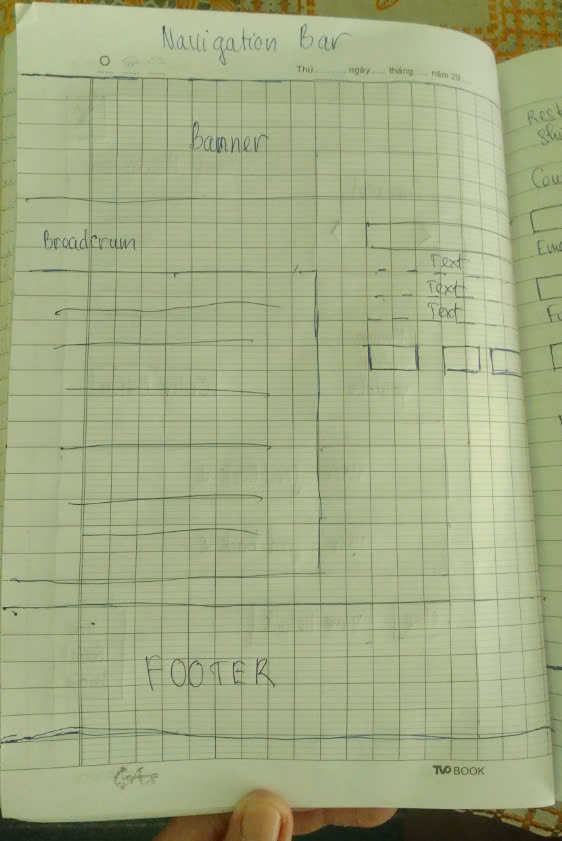 Navigation Bar
Thứ.............. ngày...... tháng...... năm 20
Banner
Broadcrum
Text
Text
Text
FOOTER
TVO BOOK
Rest
Cou
Ema
Fu